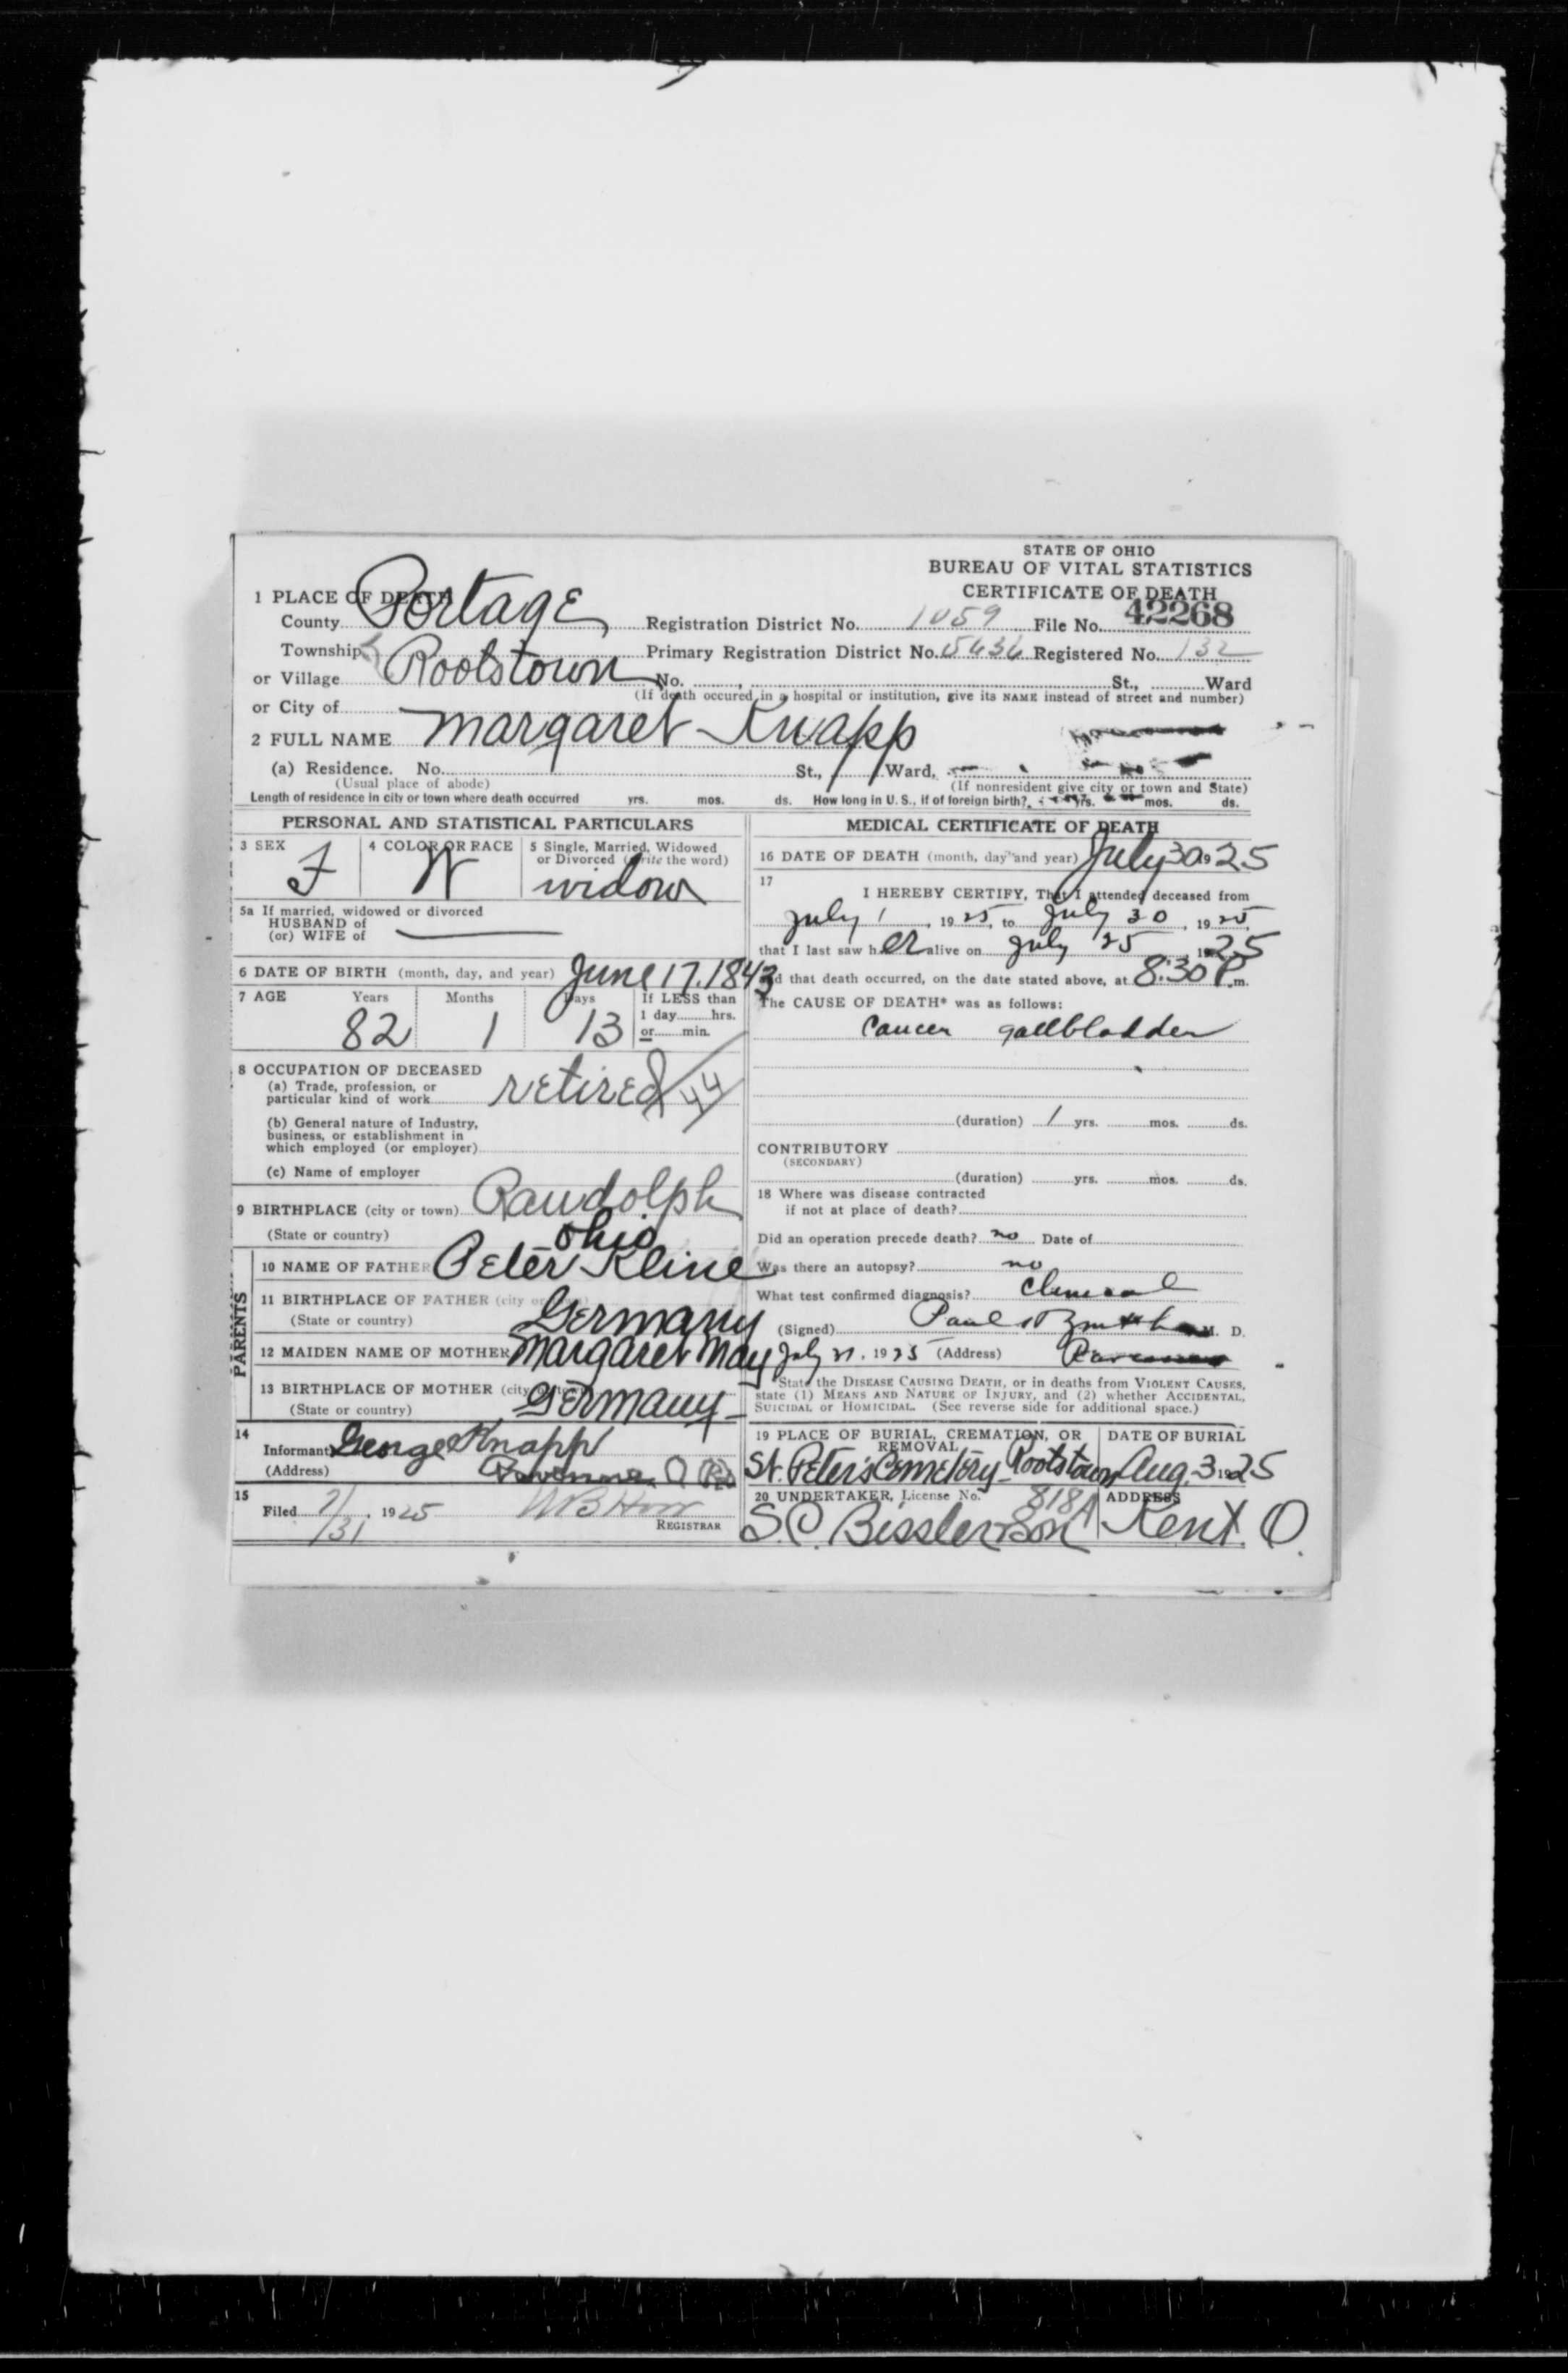 STATE OF OHIO
BUREAU OF VITAL STATISTICS
CERTIFICATE OF DEATH
1 PLACE OF DEATH
County Portage Registration District No. 1059 File No. 42268
Township Rootstown Primary Registration District No. 5636 Registered No. 132
or Village No. St., Ward
(If death occured in a hospital or institution, give its NAME instead of street and number)
or City of
2 FULL NAME Margaret Knapp
(a) Residence. No. St., Ward,
(Usual place of abode) (If nonresident give city or town and State)
Length of residence in city or town where death occurred yrs. mos. ds. How long in U. S., if of foreign birth? yrs. mos. ds.
PERSONAL AND STATISTICAL PARTICULARS
3 SEX F
4 COLOR OR RACE W
5 Single, Married, Widowed or Divorced (write the word) widow
5a If married, widowed or divorced
HUSBAND of
(or) WIFE of
6 DATE OF BIRTH (month, day, and year) June 17, 1843
7 AGE Years Months Days If LESS than
82 1 13 1 day hrs.
or min.
8 OCCUPATION OF DECEASED
(a) Trade, profession, or
particular kind of work retired 44
(b) General nature of Industry,
business, or establishment in
which employed (or employer)
(c) Name of employer
9 BIRTHPLACE (city or town) Randolph
(State or country) Ohio
PARENTS
10 NAME OF FATHER Peter Kline
11 BIRTHPLACE OF FATHER (city or town)
(State or country) Germany
12 MAIDEN NAME OF MOTHER Margaret May
13 BIRTHPLACE OF MOTHER (city or town)
(State or country) Germany
14
Informant George Knapp
(Address) Ravenna O
15
Filed 7/31, 1925
REGISTRAR
MEDICAL CERTIFICATE OF DEATH
16 DATE OF DEATH (month, day and year) July 30 1925
17
I HEREBY CERTIFY, That I attended deceased from
July 1, 1925, to July 30, 1925,
that I last saw her alive on July 25 1925
and that death occurred, on the date stated above, at 8:30 P.m.
The CAUSE OF DEATH* was as follows:
Cancer gallbladder
(duration) 1 yrs. mos. ds.
CONTRIBUTORY
(SECONDARY)
(duration) yrs. mos. ds.
18 Where was disease contracted
if not at place of death?
Did an operation precede death? no Date of
Was there an autopsy? no
What test confirmed diagnosis? Clinical
(Signed) Paul M. D.
July 31, 1925 (Address) Ravenna
*State the DISEASE CAUSING DEATH, or in deaths from VIOLENT CAUSES,
state (1) MEANS AND NATURE OF INJURY, and (2) whether ACCIDENTAL,
SUICIDAL or HOMICIDAL. (See reverse side for additional space.)
19 PLACE OF BURIAL, CREMATION, OR REMOVAL DATE OF BURIAL
St. Peter's Cemetery Rootstown Aug. 3 1925
20 UNDERTAKER, License No. 818A ADDRESS
S.C. Bissler & Son Kent. O.